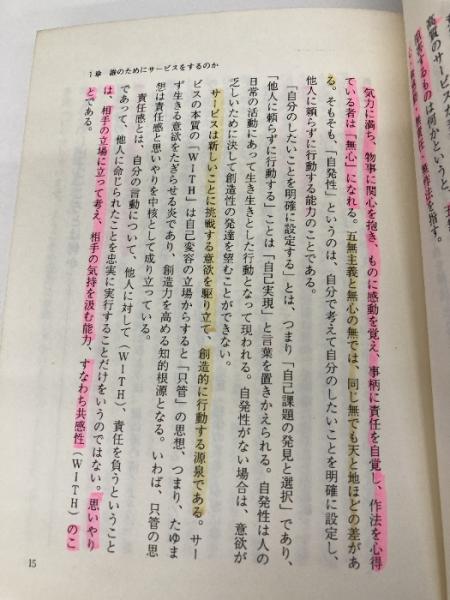 高質のサービス
するものは何かというと、
無作法を指す。
1章　誰のためにサービスをするのか
気力に満ち、物事に関心を抱き、ものに感動を覚え、事柄に責任を自覚し、作法を心得
ている者は「無心」になれる。五無主義と無心の無では、同じ無でも天と地ほどの差があ
る。そもそも、「自発性」というのは、自分で考えて自分のしたいことを明確に設定し、
他人に頼らずに行動する能力のことである。
「自分のしたいことを明確に設定する」とは、つまり「自己課題の発見と選択」であり、
「他人に頼らずに行動する」ことは「自己実現」と言葉を置きかえられる。自発性は人の
日常の活動にあって生き生きとした行動となって現われる。自発性がない場合は、意欲が
乏しいために決して創造性の発達を望むことができない。
サービスは新しいことに挑戦する意欲を駆り立て、創造的に行動する源泉である。サー
ビスの本質の「WITH」は自己変容の立場からすると「只管」の思想、つまり、たゆま
ず生きる意欲をたぎらせる炎であり、創造力を高める知的根源となる。いわば、只管の思
想は責任感と思いやりを中核として成り立っている。
責任感とは、自分の言動について、他人に対して（WITH）、責任を負うということ
であって、他人に命じられたことを忠実に実行することだけをいうのではない。思いやり
は、相手の立場に立って考え、相手の気持を汲む能力、すなわち共感性（WITH）のこ
とである。
15